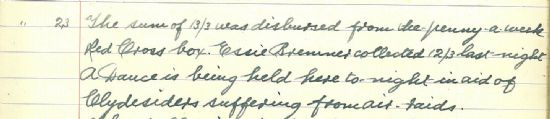 " 23 The sum of 13/3 was disbursed from the penny-a-week
Red Cross box. Essie Bremner collected 12/3 last night
A Dance is being held here to-night in aid of
Clydesiders suffering from air-raids.